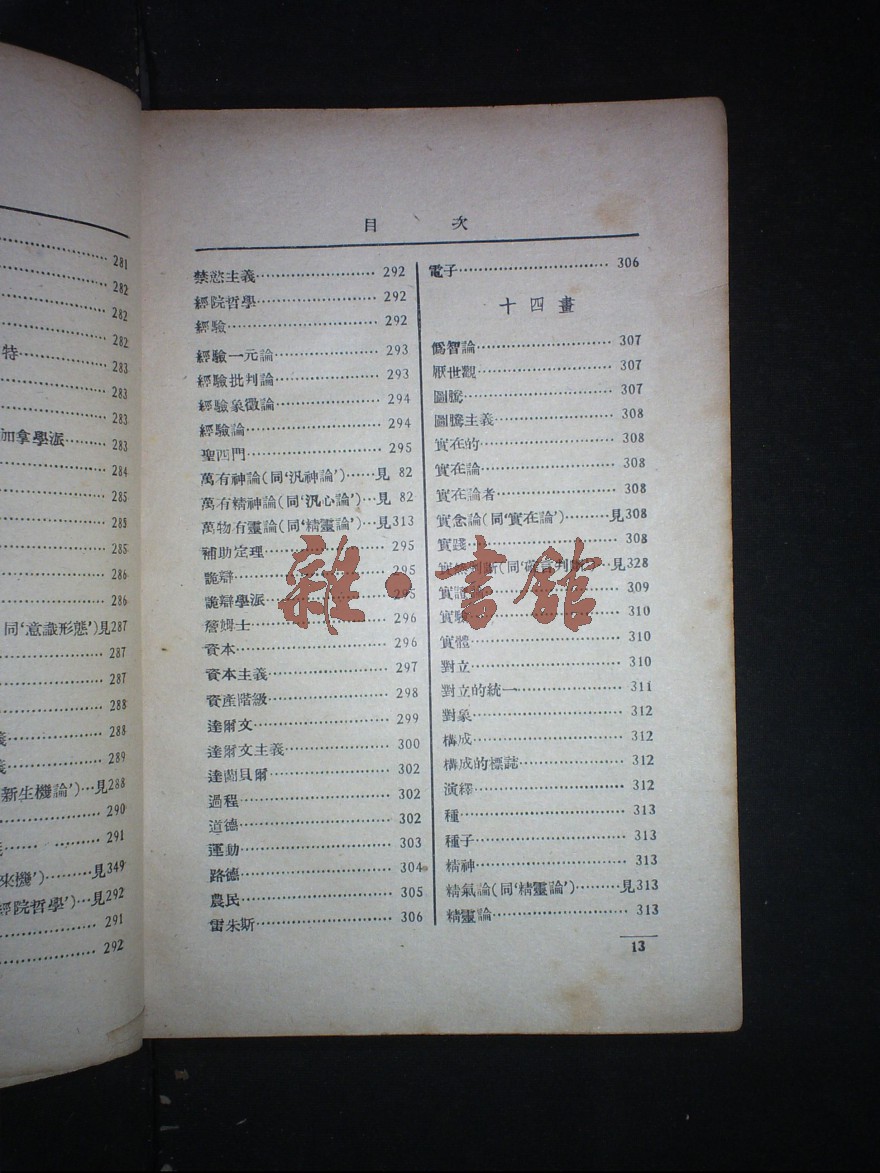 281
282
282
282
特……283
283
283
加拿學派……283
284
285
285
285
286
286
同‘意識形態’)見287
287
287
288
義……288
義……289
新生機論’)…見288
290
291
來機’)……見349
經院哲學’)…見292
291
292
目 次
禁慾主義……292
經院哲學……292
經驗……292
經驗一元論……293
經驗批判論……293
經驗象徵論……294
經驗論……294
聖四門……295
萬有神論(同‘汎神論’)……見 82
萬有精神論(同‘汎心論’)…見 82
萬物有靈論(同‘精靈論’)…見313
補助定理……295
詭辯……295
詭辯學派……295
詹姆士……296
資本……296
資本主義……297
資產階級……298
達爾文……299
達爾文主義……300
達蘭貝爾……302
過程……302
道德……302
運動……303
路德……304
農民……305
雷朱斯……306
電子……306
十四畫
僞智論……307
厭世觀……307
圖騰……307
圖騰主義……308
實在的……308
實在論……308
實在論者……308
實念論(同‘實在論’)……見308
實踐……308
實然判斷(同‘確言判斷’)…見328
實證論……309
實驗……310
實體……310
對立……310
對立的統一……311
對象……312
構成……312
構成的標誌……312
演繹……312
種……313
種子……313
精神……313
精氣論(同‘精靈論’)……見313
精靈論……313
13
雜·書館